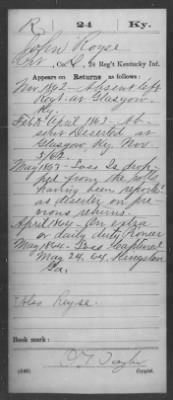 R 24 Ky.
John Royse
Pvt, Co. C, 24 Reg't Kentucky Inf.
Appears on Returns as follows:
Nov 1862 - Absent left
Regt. at Glasgow
Ky.
Feb & April 1863 - Ab-
sent Deserted at
Glasgow Ky. Nov
3/62.
May 1863 - Loss Is drop-
ped from the rolls
having been reported
as deserter on pre-
vious returns.
April 1864 - On extra
or daily duty Pioneer
May 1864 - Loss Captured
May 24, 64 Kingston
Ga.
Also Reyse.
Book mark:
(546) Copyist.